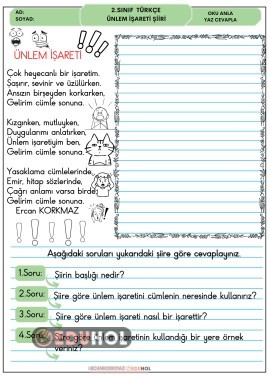 AD:
SOYAD:
2.SINIF TÜRKÇE
ÜNLEM İŞARETİ ŞİİRİ
OKU ANLA
YAZ CEVAPLA
ÜNLEM İŞARETİ
Çok heyecanlı bir işaretim.
Şaşırır, sevinir ve üzülürken.
Ansızın birşeyden korkarken,
Gelirim cümle sonuna.
Kızgınken, mutluyken,
Duygularımı anlatırken,
Ünlem işaretiyim ben,
Gelirim cümle sonuna.
Yasaklama cümlelerinde,
Emir, hitap sözlerinde,
Çağrı anlamı varsa birde
Gelirim cümle sonuna.
Ercan KORKMAZ
Aşağıdaki soruları yukarıdaki şiire göre cevaplayınız.
1.Soru: Şiirin başlığı nedir?
2.Soru: Şiire göre ünlem işaretini cümlenin neresinde kullanırız?
3.Soru: Şiire göre ünlem işareti nasıl bir işarettir?
4.Soru: Şiire göre ünlem işaretinin kullandığı bir yere örnek
veriniz?
EDUHOL